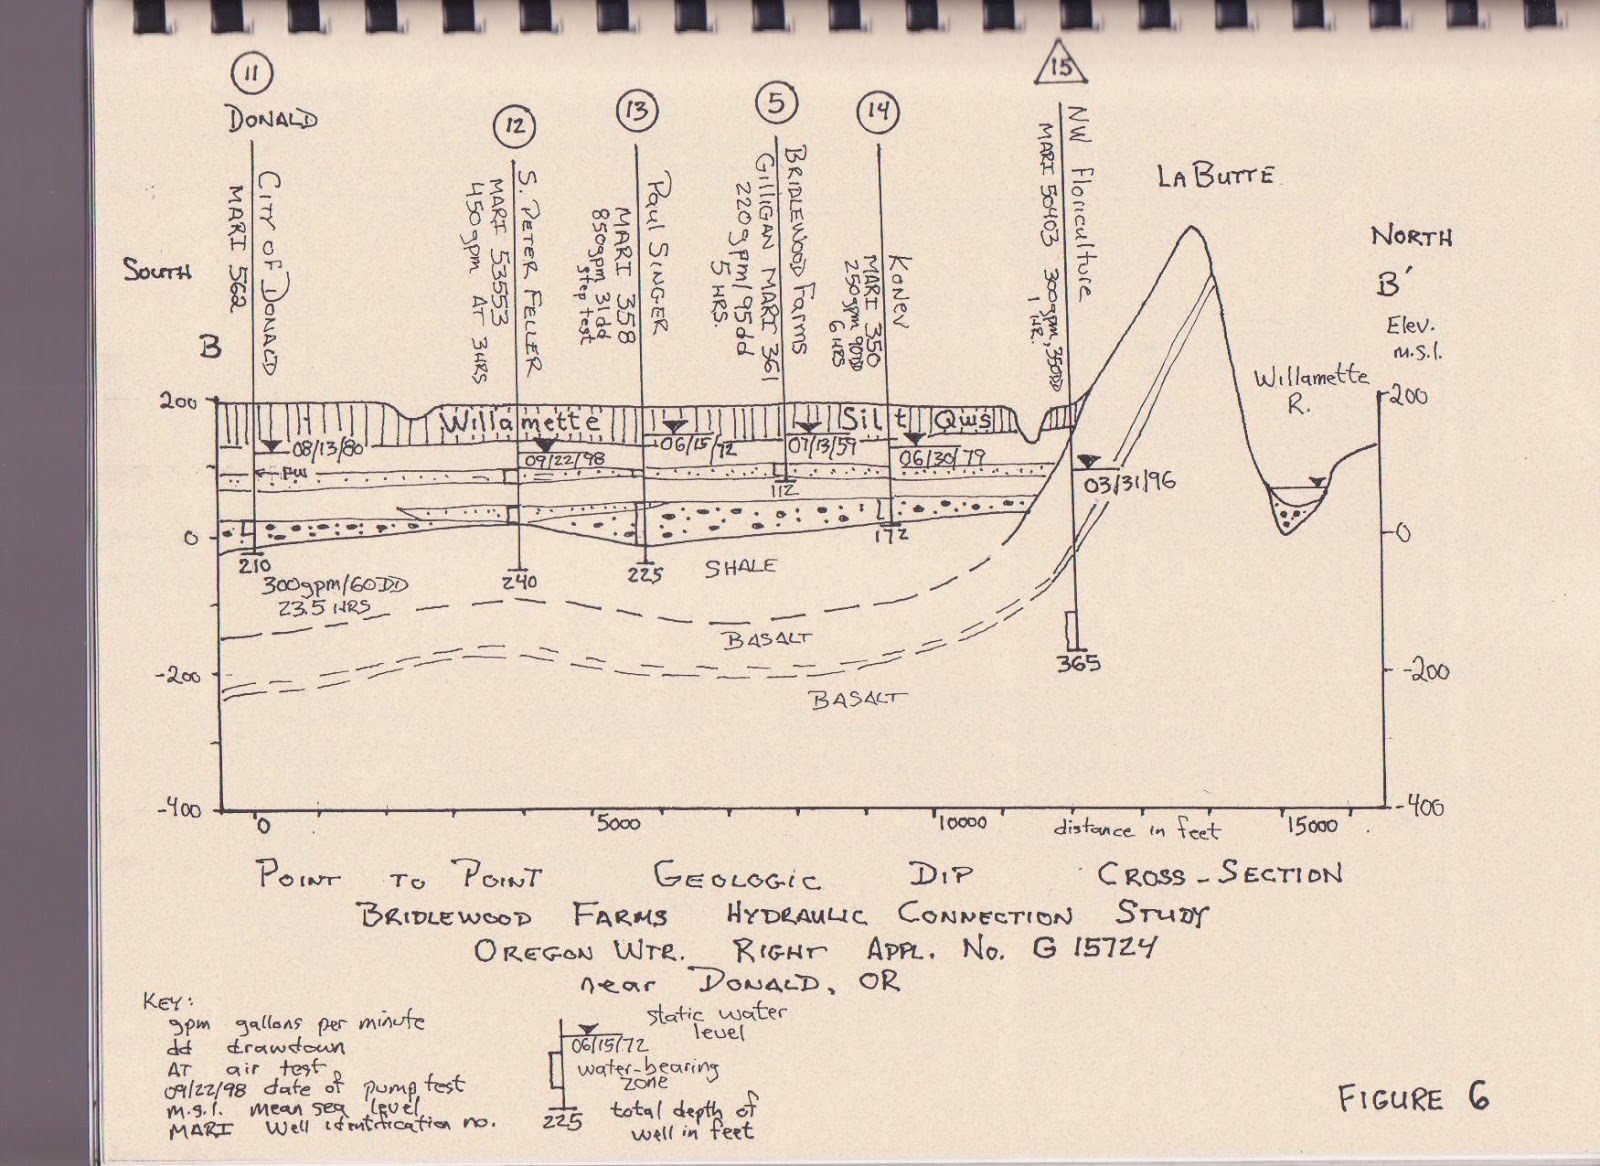 11
DONALD
CITY OF DONALD
MARI 562
SOUTH
B
12
S. PETER FELLER
MARI 53553
450gpm AT 3HRS
13
Paul SINGER
MARI 358
850gpm 31dd
step test
5
BRIDLEWOOD Farms
GILLIGAN MARI 361
220gpm/95dd
5 HRS.
14
KONEV
MARI 350
250gpm 90DD
6 HRS
15
NW Floriculture
MARI 50403 300gpm, 350DD
1 HR.
LA BUTTE
NORTH
B'
Elev.
m.s.l.
Willamette
R.
200
0
-200
-400
200
0
-200
-400
Willamette Silt Qws
08/13/80
09/22/98
06/15/72
07/13/59
06/30/79
03/31/96
210
300gpm/60DD
23.5 HRS
240
225
112
172
365
SHALE
BASALT
BASALT
0 5000 10000 distance in feet 15000
POINT TO POINT GEOLOGIC DIP CROSS-SECTION
BRIDLEWOOD FARMS HYDRAULIC CONNECTION STUDY
OREGON WTR. RIGHT APPL. NO. G 15724
near DONALD, OR
KEY:
gpm gallons per minute
dd drawdown
AT air test
09/22/98 date of pump test
m.s.l. mean sea level
MARI Well identification no.
static water
level
06/15/72
water-bearing
zone
225 total depth of
well in feet
FIGURE 6